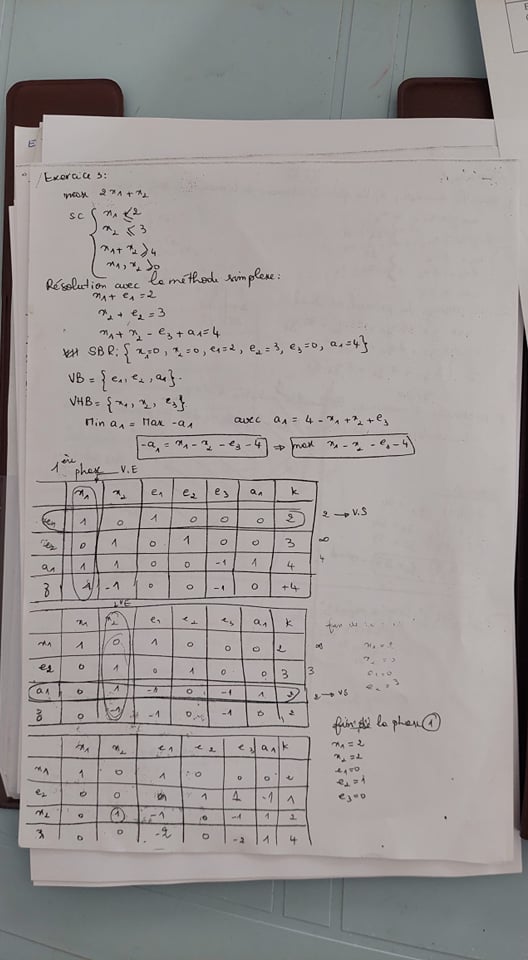 E
Exercice 3:
max 2x1 + x2
SC { x1 ≤ 2
x2 ≤ 3
x1 + x2 ≥ 4
x1, x2 ≥ 0
Résolution avec la méthode simplexe:
x1 + e1 = 2
x2 + e2 = 3
x1 + x2 - e3 + a1 = 4
SBR: { x1=0, x2=0, e1=2, e2=3, e3=0, a1=4 }
VB = { e1, e2, a1 }.
VHB = { x1, x2, e3 }
Min a1 = Max -a1 avec a1 = 4 - x1 + x2 + e3
-a1 = x1 - x2 - e3 - 4 ⇒ max x1 - x2 - e3 - 4
1ère phase V.E
x1 x2 e1 e2 e3 a1 k
e1 1 0 1 0 0 0 2 2 → V.S
e2 0 1 0 1 0 0 3 ∞
a1 1 1 0 0 -1 1 4 4
z -1 -1 0 0 -1 0 +4
VE
x1 x2 e1 e2 e3 a1 k
x1 1 0 1 0 0 0 2 ∞
e2 0 1 0 1 0 0 3 3
a1 0 1 -1 0 -1 1 2 2 → VS
z 0 -1 -1 0 -1 0 2
fin de la phase 1
x1 x2 e1 e2 e3 a1 k
x1 1 0 1 0 0 0 2
e2 0 0 1 1 -1 1
x2 0 1 -1 0 -1 1 2
z 0 0 -2 0 -2 1 4
x1 = 2
x2 = 2
e1 = 0
e2 = 1
e3 = 0